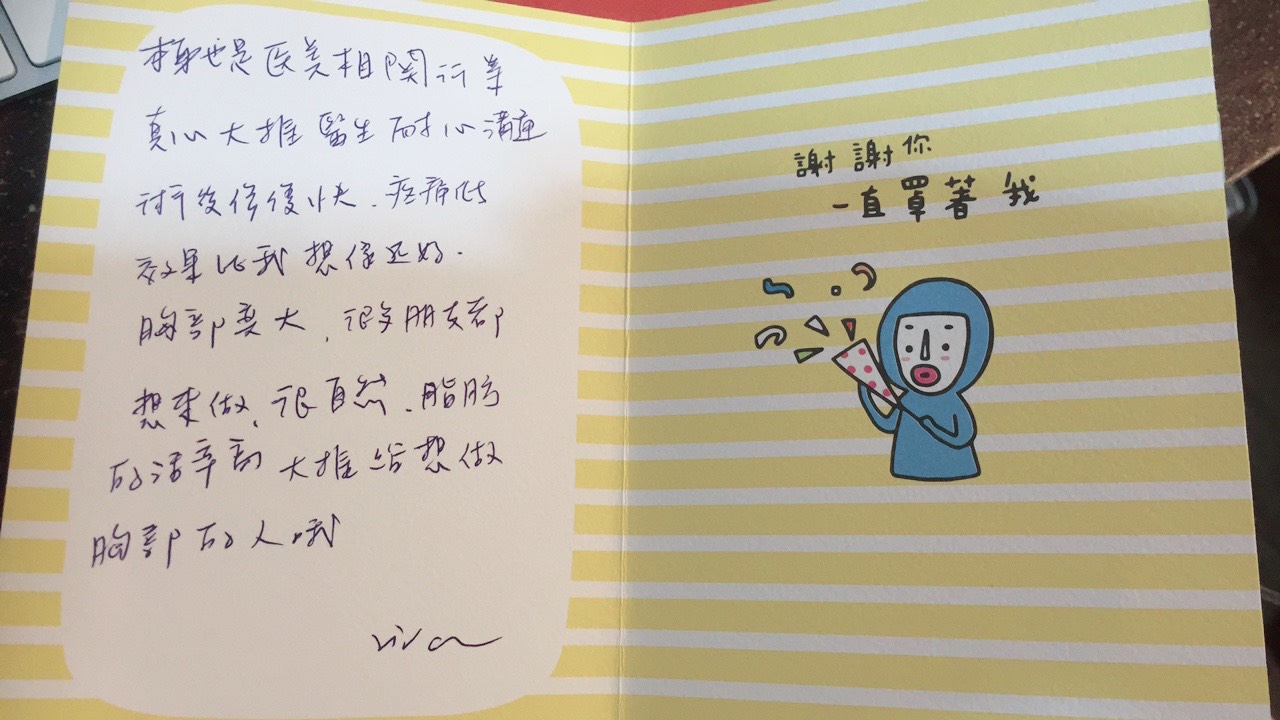 本身也是医美相関行業
真心大推醫生耐心溝通
術後修復快、疼痛低
效果比我想像还好.
胸部変大,很多朋友都
想來做、很自然、脂肪
的活率高 大推給想做
胸部的人哦
vivan
謝謝你
一直罩著我